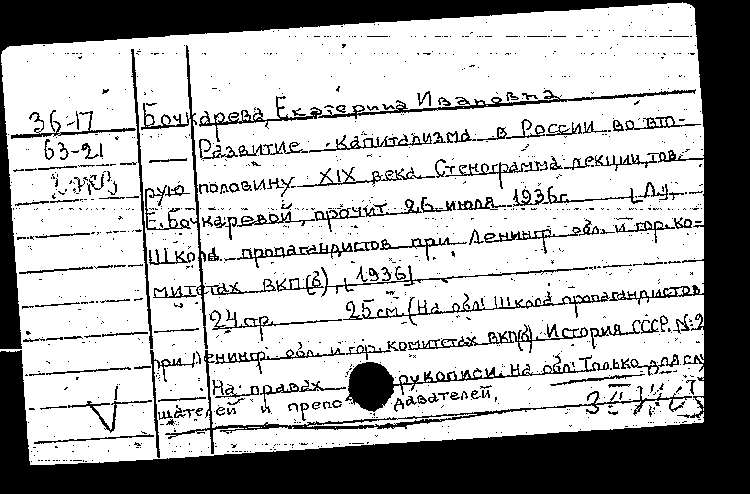 36-17
63-21
2 экз
Бочкарева, Екатерина Ивановна
Развитие капитализма в России во вто-
рую половину XIX века. Стенограмма лекции, тов.
Е. Бочкаревой, прочит. 26 июля 1936г. [Л.],
Школа пропагандистов при Ленингр. обл. и гор. ко-
митетах ВКП(б), [1936].
24 стр. 25 см. (На обл: Школа пропагандистов
при Ленингр. обл. и гор. комитетах ВКП(б). История СССР. №2
На правах рукописи. На обл: Только для слу
шателей и препо давателей.